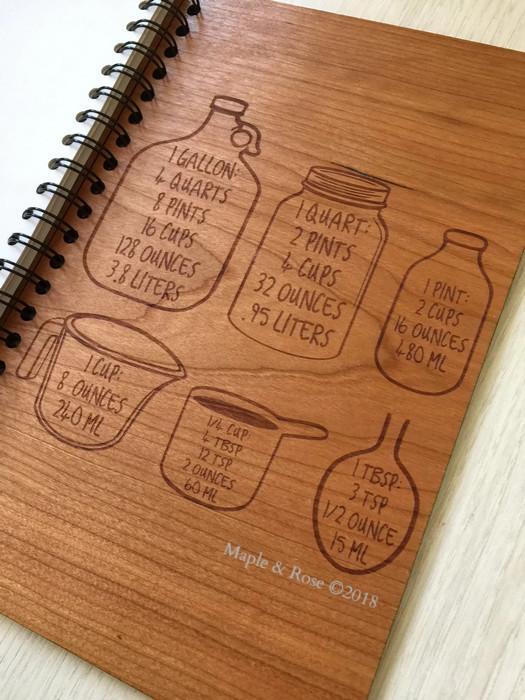 1 GALLON:
4 QUARTS
8 PINTS
16 CUPS
128 OUNCES
3.8 LITERS
1 QUART:
2 PINTS
4 CUPS
32 OUNCES
.95 LITERS
1 PINT:
2 CUPS
16 OUNCES
480 ML
1 CUP:
8 OUNCES
240 ML
1/4 CUP:
4 TBSP
12 TSP
2 OUNCES
60 ML
1 TBSP:
3 TSP
1/2 OUNCE
15 ML
Maple & Rose ©2018